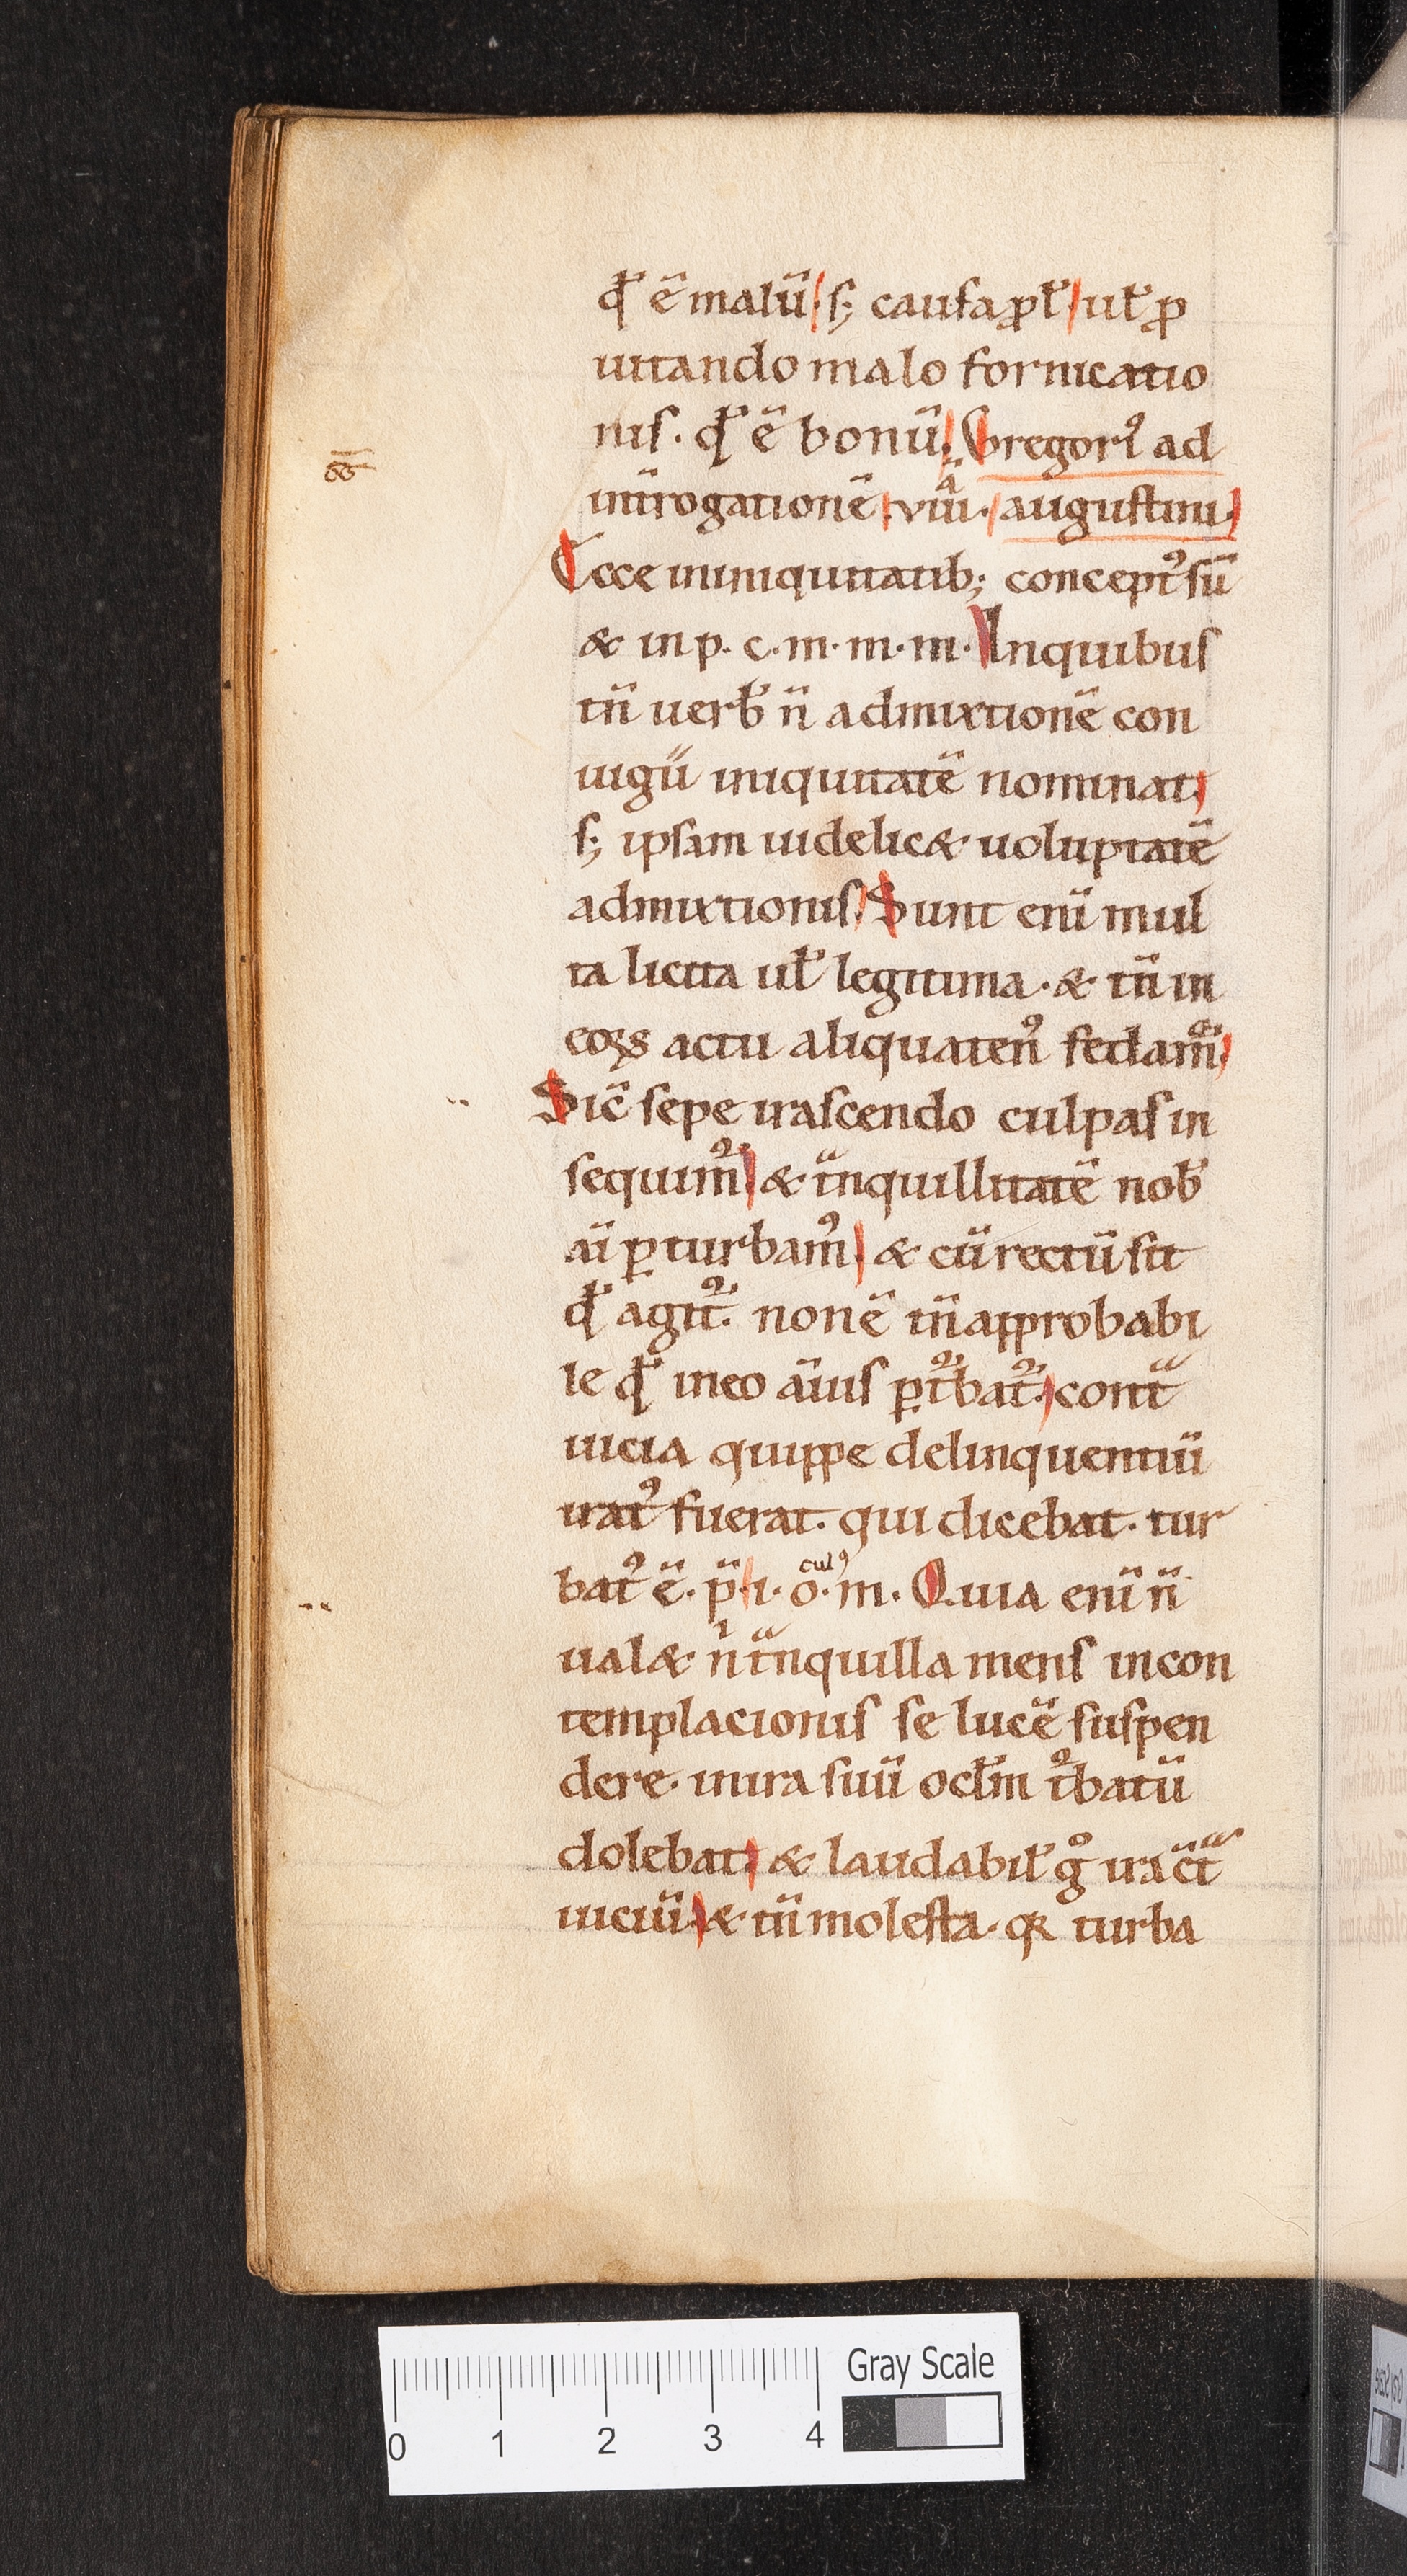 qḋ ē malū. s; causa p̱t̄. ut̄ ꝓ
uitando malo fornicatio
nis. qḋ ē bonū. Gregoriꝰ ad
int̄rogationē. viiii.ᵃ augustini.
Ecce in iniquitatib; conceptꝰ sū
& in p. c. m. m. m. In quibus
tn̄ uerb̄ n̄ admixtionē con
iugū iniquitatē nominat.
s; ipsam uidelic& uoluptatē
admixtionis. Sunt enī mul
ta licita ul̄ legitima. & tn̄ in
eoꝝ actu aliquatenꝰ fedamꝰ.
Sic̄ sepe irascendo culpas in
sequimꝰ. & tᵃnquillitatē nob̄
aī ꝑturbamꝰ. & cū rectū sit
qḋ agit᷑. non ē tn̄ approbabi
le qḋ in eo aīus ꝑt᷑bat᷑. contᵃ
uicia quippe delinquentiū
iratꝰ fuerat. qui dicebat. tur
batꝰ ē. p̄. i. ō.culꝰ m. Quia enī n̄
ual& nⁱ tᵃnquilla mens in con
templacionis se lucē suspen
dere. in ira suū ocl̄m t᷑batū
dolebat. & laudabil̄ gͦ ira c̄tᵃ
uiciū. & tn̄ molesta. qꝛ turba
Gray Scale
0 1 2 3 4